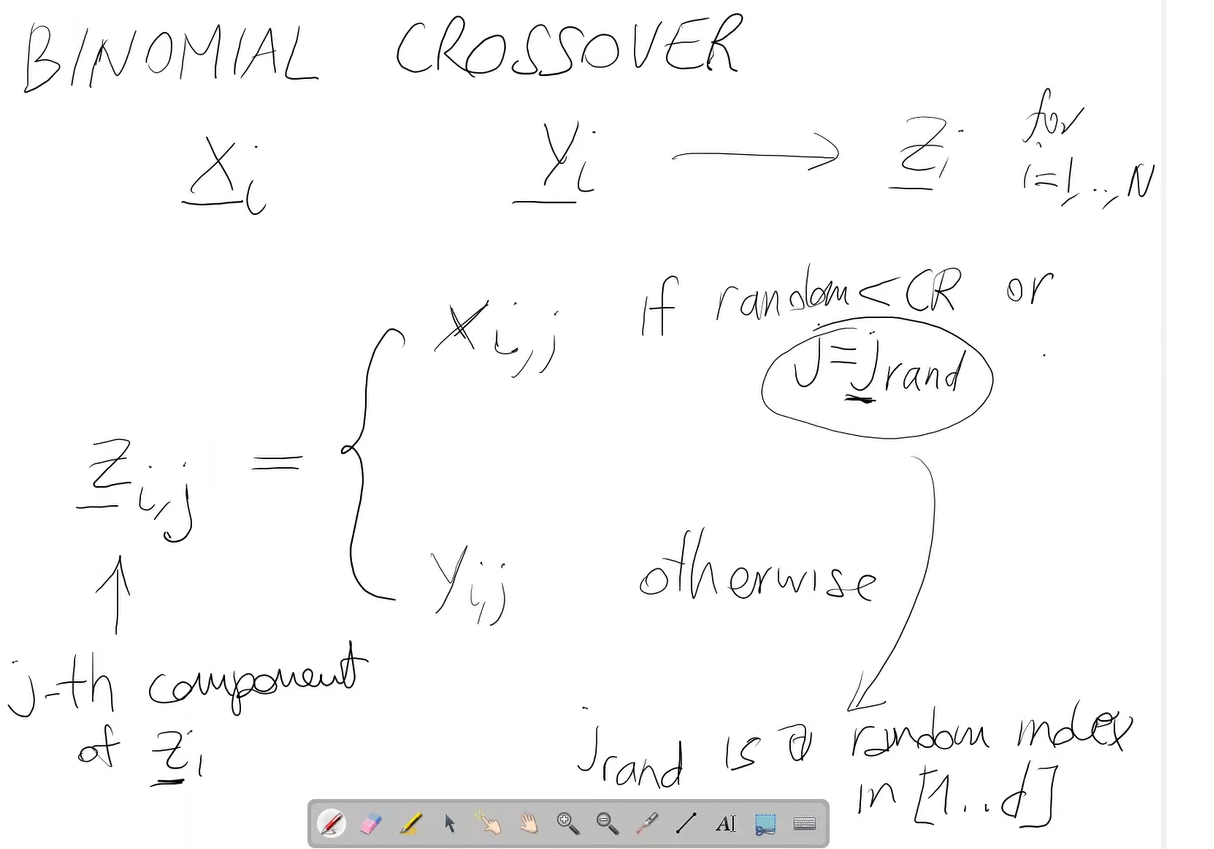 BINOMIAL CROSSOVER
Xi Yi → Zi for
i=1,..,N
Xi,j if random < CR or
j=jrand
Zi,j =
Yi,j otherwise
j-th component
of Zi
jrand is a random index
in [1..d]
AI